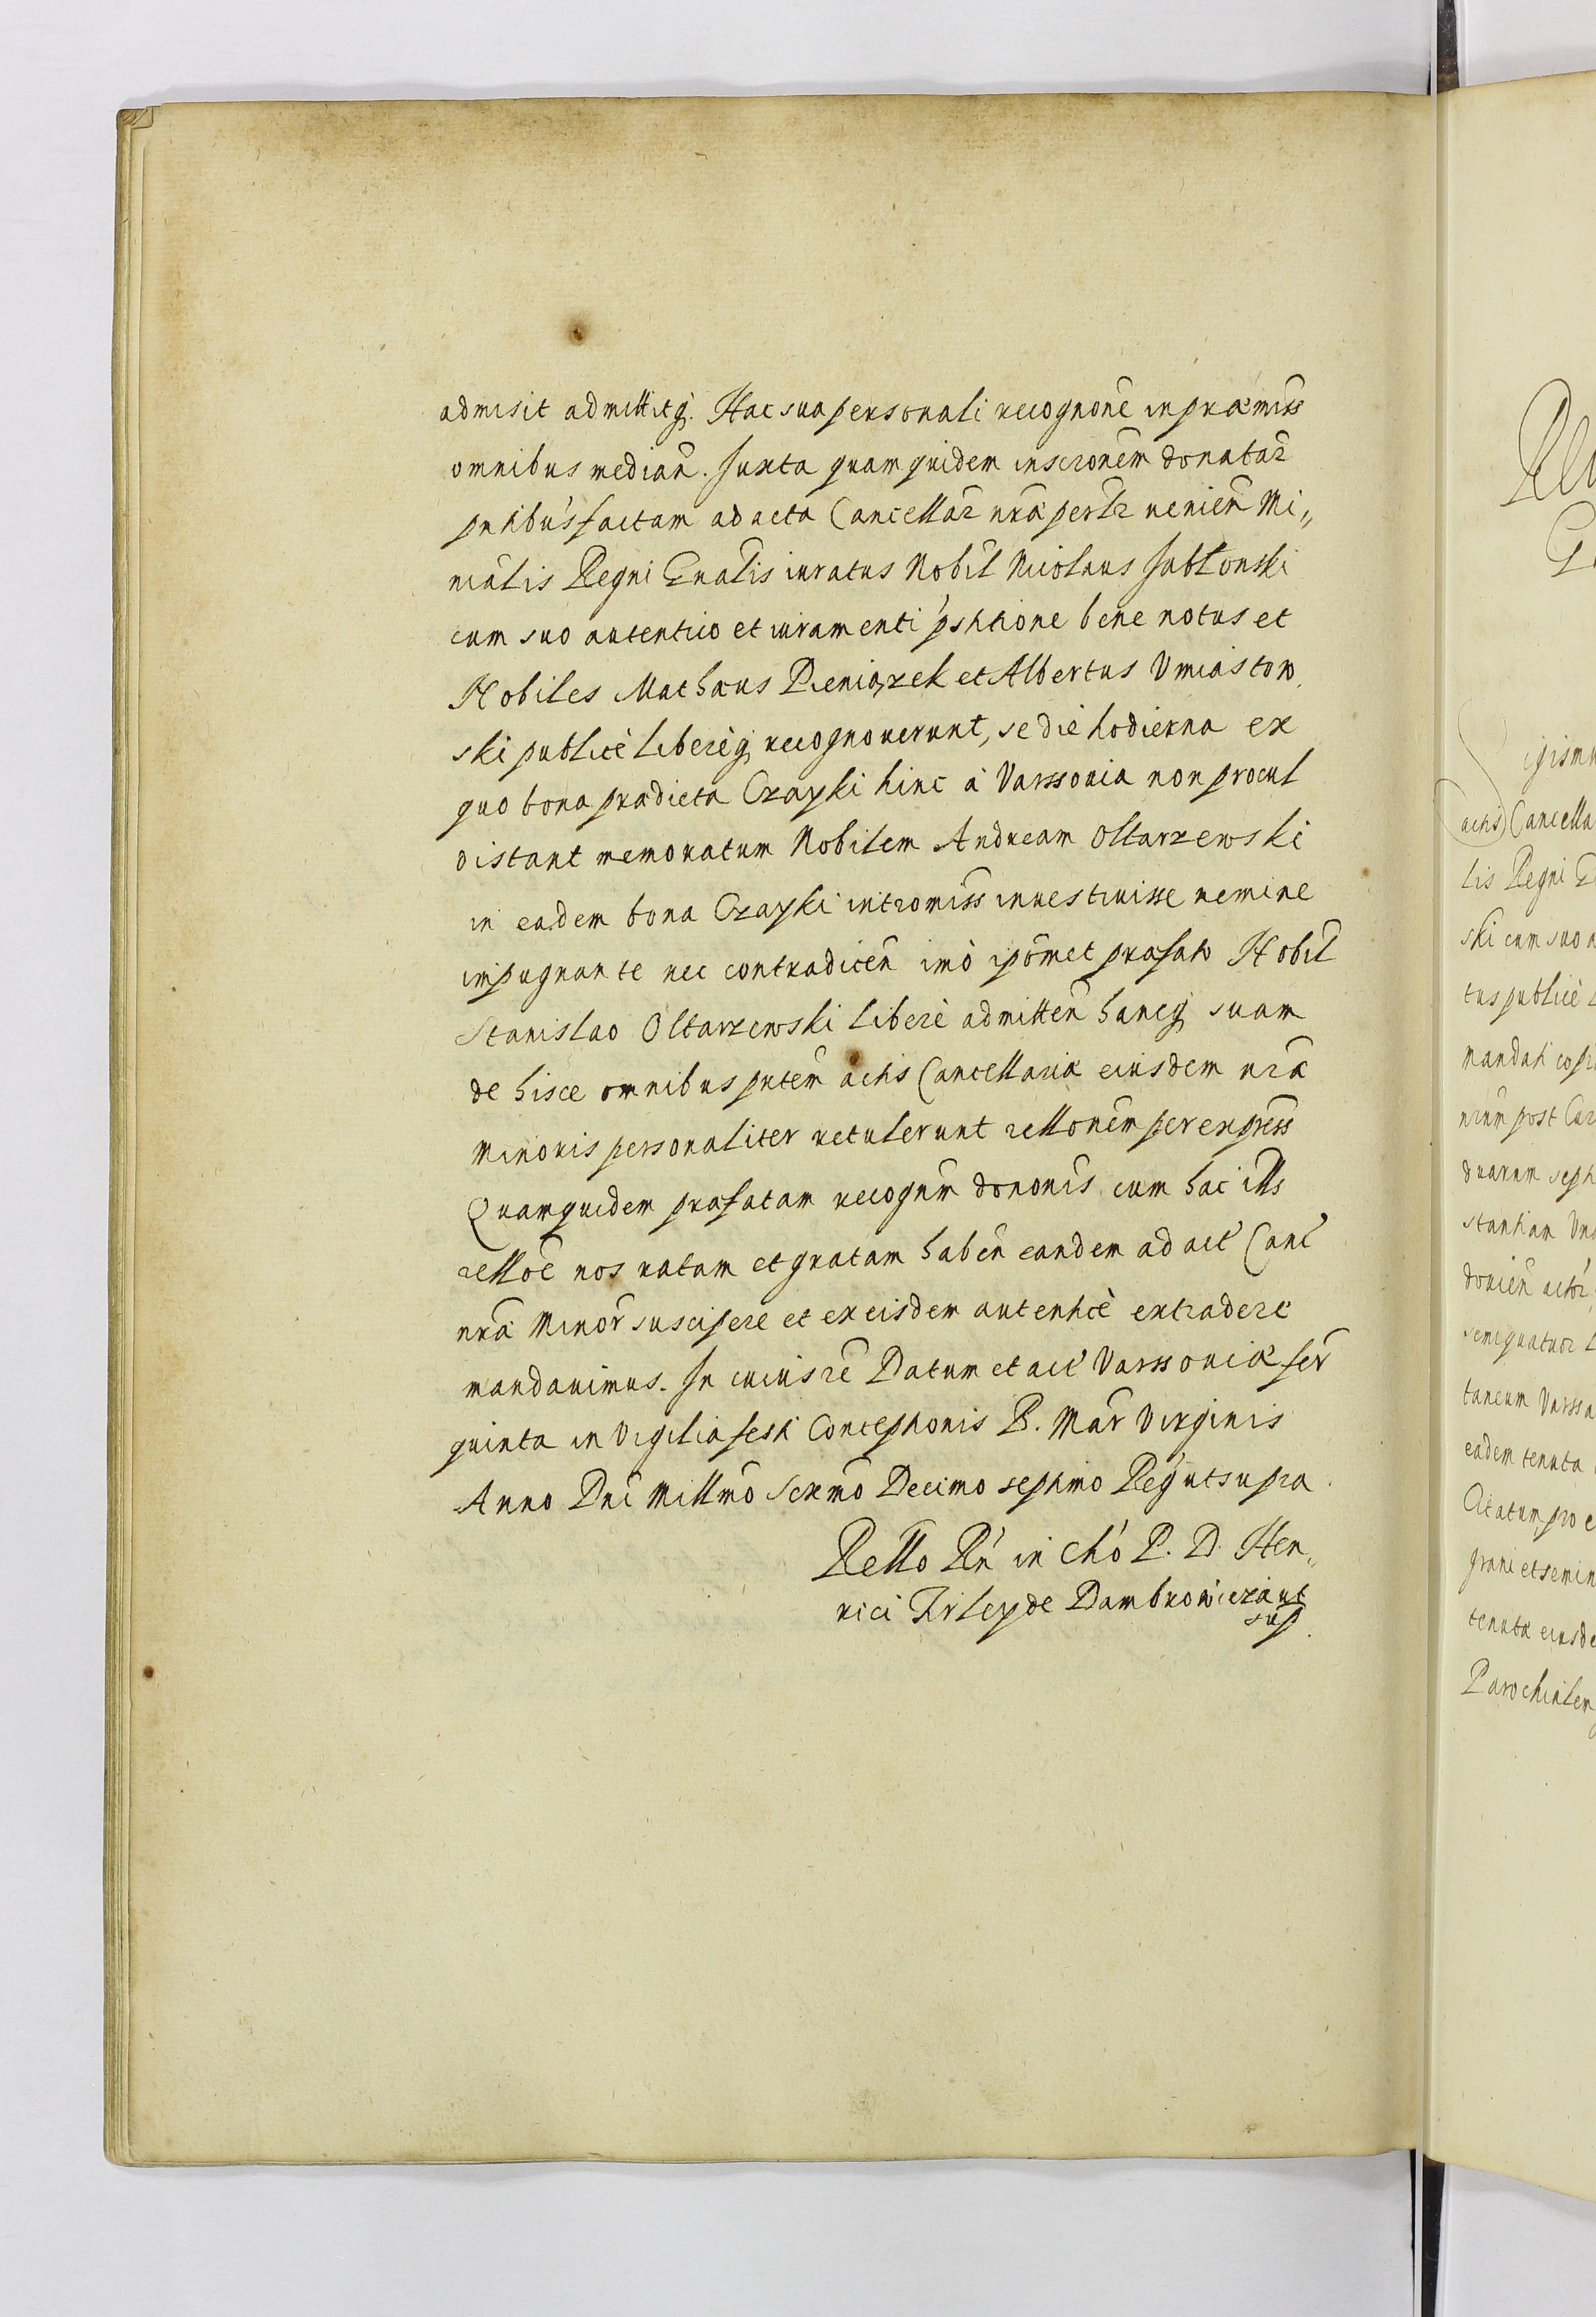 admisit admittitq. Hac sua personali recognone in præmiss
omnibus median. Juxta quam quidem inscronem donatar
pntibus factam ad acta Cancellar nræ perlr venien Mi„
nialis Regni Gnalis iuratus Nobil Nicolaus Jabłonski
cum suo autentico et iuramenti pshtione bene notus et
Nobiles Mathæus Pieniązek et Albertus Umiastow
ski publicè liberèq recognoverunt, se die hodierna ex
quo bona prædicta Czayki hinc à Varssovia non procul
distant memoratum Nobilem Andream Ołtarzewski
in eadem bona Czayki intromiss investivisse nemine
impugnante nec contradicen imò ipomet præfato Nobil
Stanislao Ołtarzewski liberè admitten hancq suam
de hisce omnibus pntem actis Cancellariæ eiusdem nræ
Minoris personaliter retulerunt rellonem per express
Quamquidem præfatam recognm dononis cum hac ills
rellõe nos ratam et gratam haben eandem ad act Canc
nræ Minor suscipere et ex eisdem autenticè extradere
mandavimus. In cuius re Datum et act Varssoviæ fer
quinta in Vigilia festi Conceptionis B. Mar Virginis
Anno Dni Millmo Sexmo Decimo septimo Reg ut supra.
Rello Rn in Chō P. D. Hen„
rici Firley de Dambrowicza ut
sup.
Sigismu
actis Cancella
lis Regni
ski cum suo a
tus publicè
mandati
num post
duarum sept
stantiam
donien
semiquatuor
taneum Varssa
eadem tenuta
Citatum pro
grani et semin
tenutæ eiusde
Parochialem